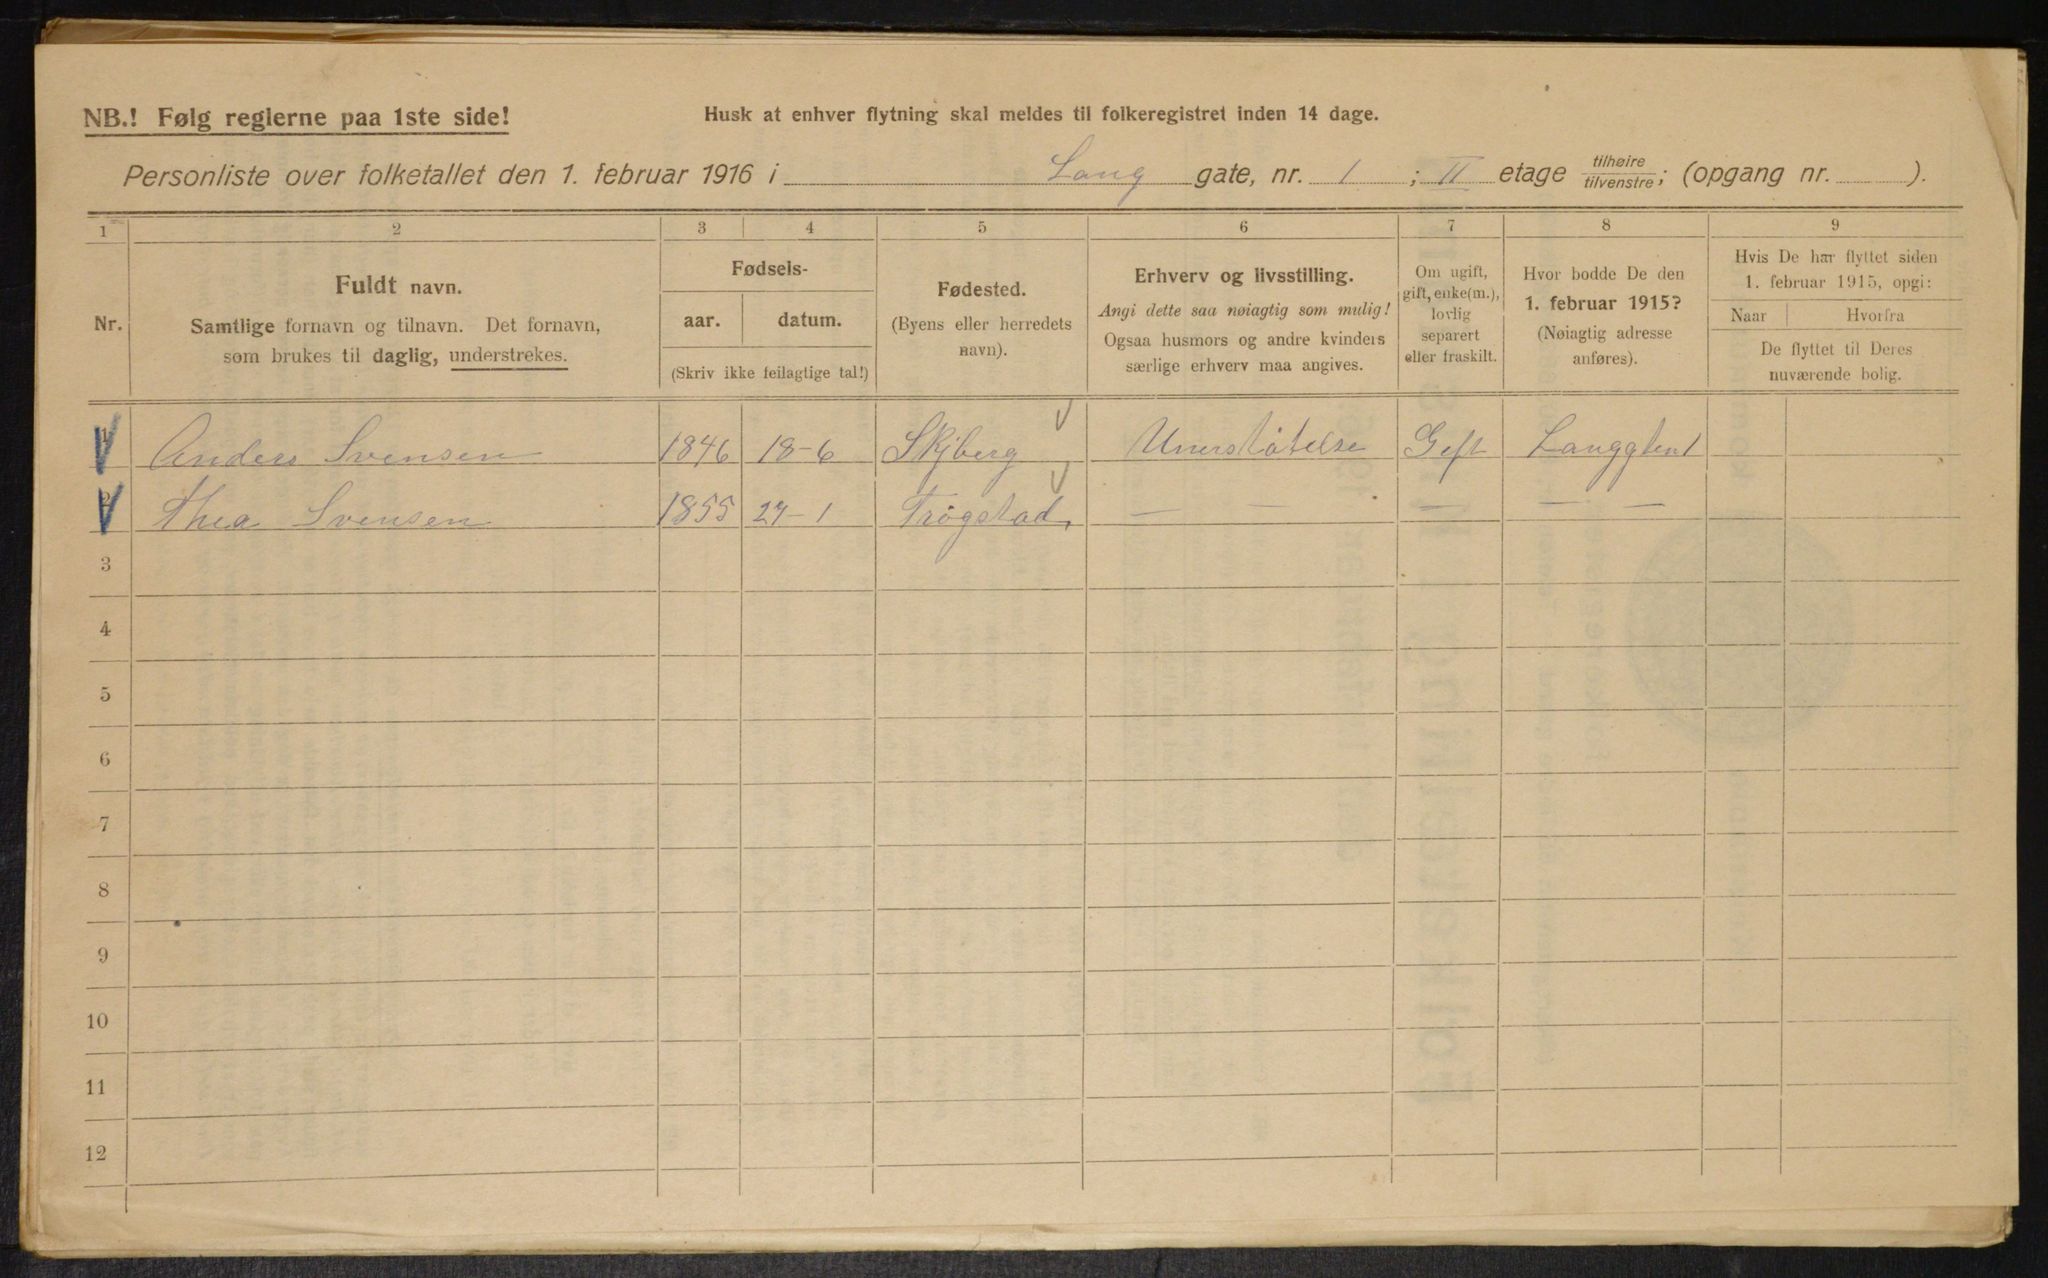 NB.! Følg reglerne paa 1ste side!
Husk at enhver flytning skal meldes til folkeregistret inden 14 dage.
Personliste over folketallet den 1. februar 1916 i Lang gate, nr. 1 ; II etage tilhøire/tilvenstre; (opgang nr. ).
1 2 3 4 5 6 7 8 9
Nr.
Fuldt navn.
Samtlige fornavn og tilnavn. Det fornavn,
som brukes til daglig, understrekes.
Fødsels-
aar. datum.
(Skriv ikke feilagtige tal!)
Fødested.
(Byens eller herredets
navn).
Erhverv og livsstilling.
Angi dette saa nøiagtig som mulig!
Ogsaa husmors og andre kvinders
særlige erhverv maa angives.
Om ugift,
gift, enke(m.),
lovlig
separert
eller fraskilt.
Hvor bodde De den
1. februar 1915?
(Nøiagtig adresse
anføres).
Hvis De har flyttet siden
1. februar 1915, opgi:
Naar Hvorfra
De flyttet til Deres
nuværende bolig.
1 Anders Svensen 1846 18-6 Skjberg Unerståtelse Gift
2 Thea Svensen 1855 — — — — —
Trøgstad
3
4
5
6
7
8
9
10
11
12